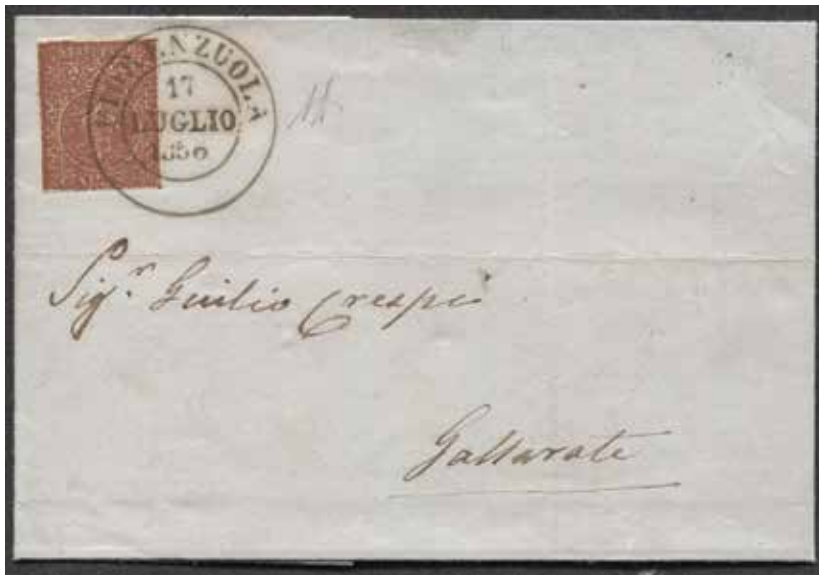 FIORENZUOLA
17
LUGLIO
1856
Sig.r Giulio Crespi
Gallarate